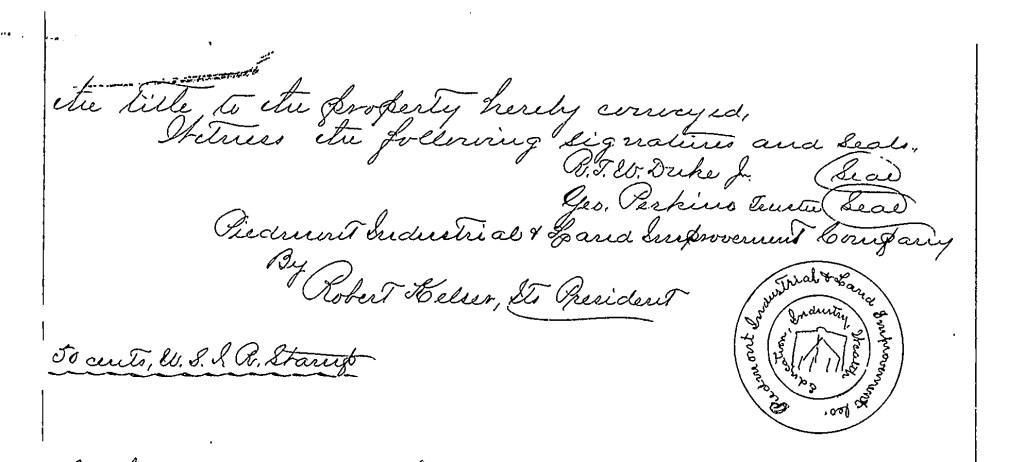 the title to the property hereby conveyed,
Witness the following signatures and seals.
R.T.W. Duke Jr. (Seal)
Geo. Perkins Trustee (Seal)
Piedmont Industrial & Land Improvement Company
By
Robert Kelser, Its President
Piedmont Industrial & Land Improvement Co.
Education, Industry, Wealth
50 cents, U.S.I.R. Stamp